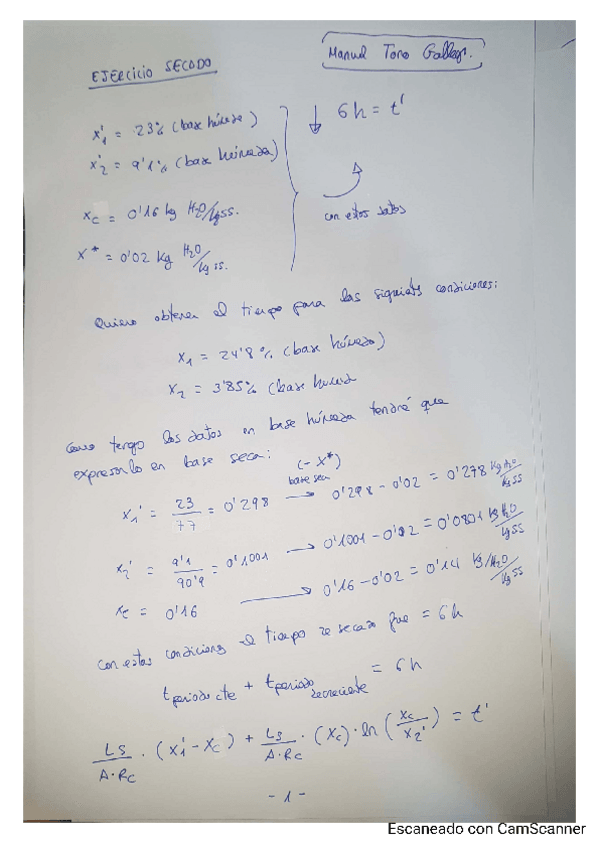 EJERCICIO SECADO
Manuel Toro Gallego.
x'₁ = 23% (base húmeda)
x'₂ = 9'1% (base húmeda)
↓ 6h = t'
con estos datos
xc = 0'16 kg H₂O/kgss.
x* = 0'02 kg H₂O/kgss.
Quiero obtener el tiempo para las siguientes condiciones:
x₁ = 24'8% (base húmeda)
x₂ = 3'85% (base humed
Como tengo los datos en base húmeda tendré que
expresarlo en base seca:
(-x*)
base seca
x₁' = 23/77 = 0'298 → 0'298 - 0'02 = 0'278 kg H₂O/kgss
x₂' = 9'1/90'9 = 0'1001 → 0'1001 - 0'02 = 0'0801 kg H₂O/kgss
xc = 0'16 → 0'16 - 0'02 = 0'14 kg H₂O/kgss
Con estas condiciones el tiempo de secado fue = 6h
tperiodo cte + tperiodo decreciente = 6h
Ls/A·Rc · (x₁' - xc) + Ls/A·Rc · (xc) · ln (xc/x₂') = t'
- 1 -
Escaneado con CamScanner